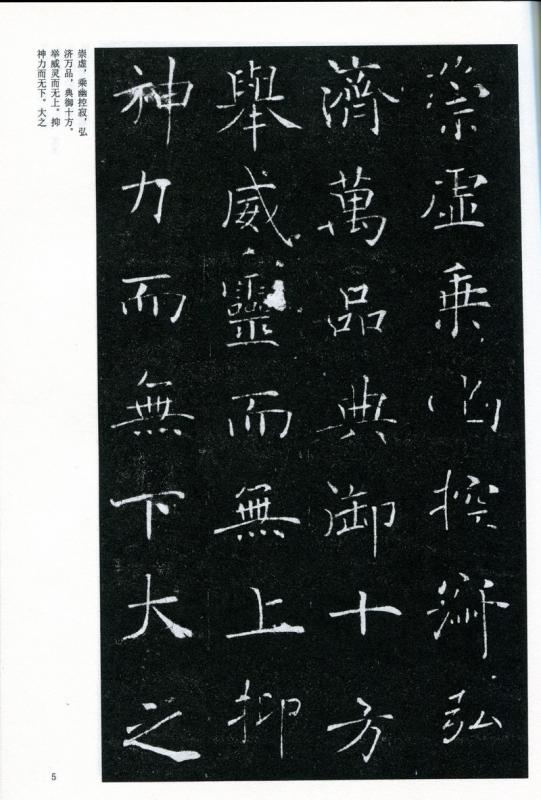 崇虚乘幽控寂弘
濟萬品典御十方
舉威靈而無上抑
神力而無下大之
崇虚，乘幽控寂，弘
济万品，典御十方。
举威灵而无上，抑
神力而无下。大之
5